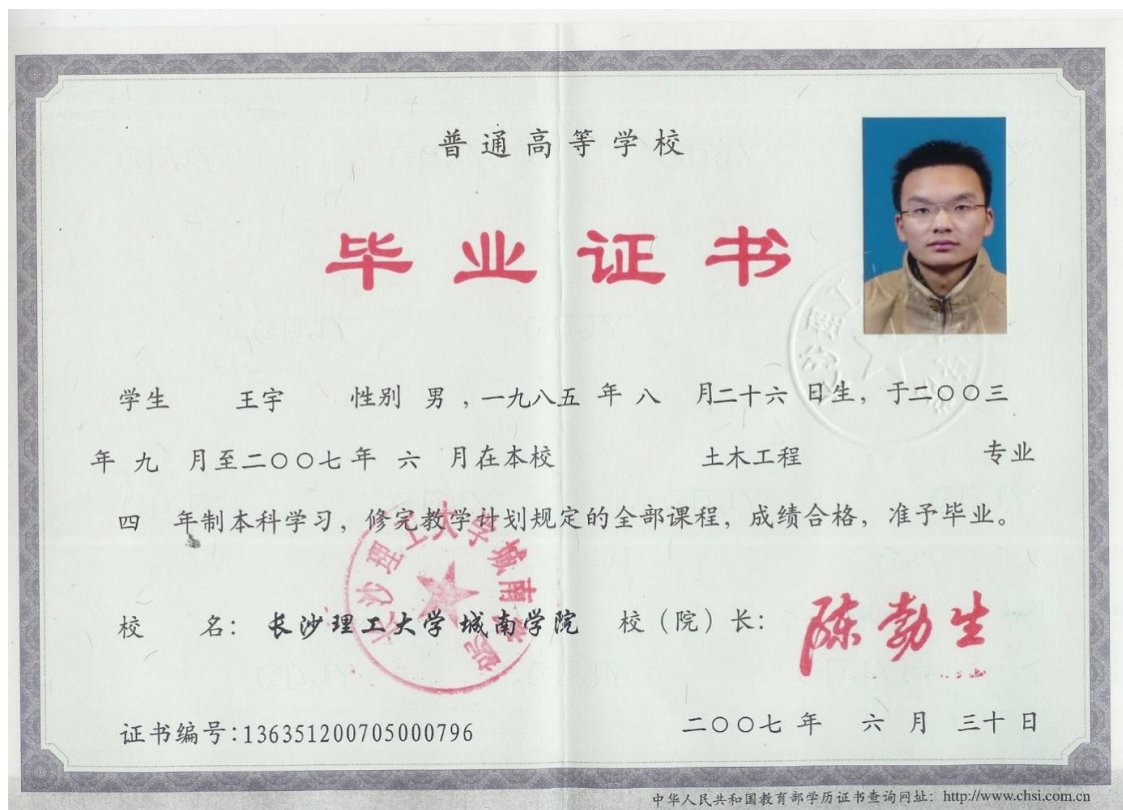 普通高等学校
毕业证书
学生 王宇 性别 男 ,一九八五 年 八 月二十六 日生，于二〇〇三
年 九 月至二〇〇七年 六 月在本校 土木工程 专业
四 年制本科学习，修完教学计划规定的全部课程，成绩合格，准予毕业。
长沙理工大学城南学院
校 名： 长沙理工大学城南学院 校（院）长： 陈勃生
证书编号:136351200705000796 二〇〇七 年 六 月 三十 日
中华人民共和国教育部学历证书查询网址：http://www.chsi.com.cn